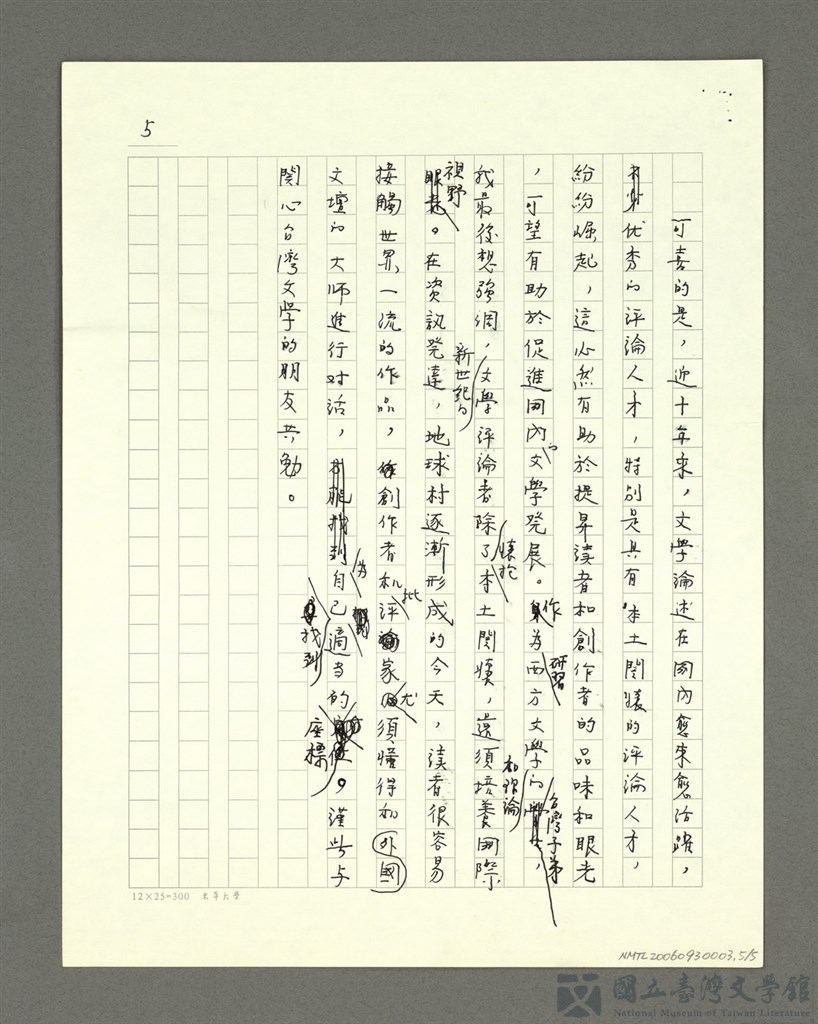 5
可喜的是，近十年來，文學論述在国內愈來愈活躍，
优秀的評論人才，特別是具有本土関懷的評論人才，
紛紛崛起，這必然有助於提昇読者和創作者的品味和眼光
，可望有助於促進国內的文學発展。作為研習西方文學和理論的台灣子弟，
我最後想強調，新世紀的文學評論者除了懷抱本土関懷，還須培養国際
視野。在資訊発達，地球村逐漸形成的今天，読者很容易
接觸世界一流的作品，創作者和批評家尤須懂得和外國
文壇的大師進行対話，為自己找到適当的座標。謹此与
関心台灣文学的朋友共勉。
12×25=300 東華大學
NMTL20060930003,5/5
國立臺灣文學館
National Museum of Taiwan Literature